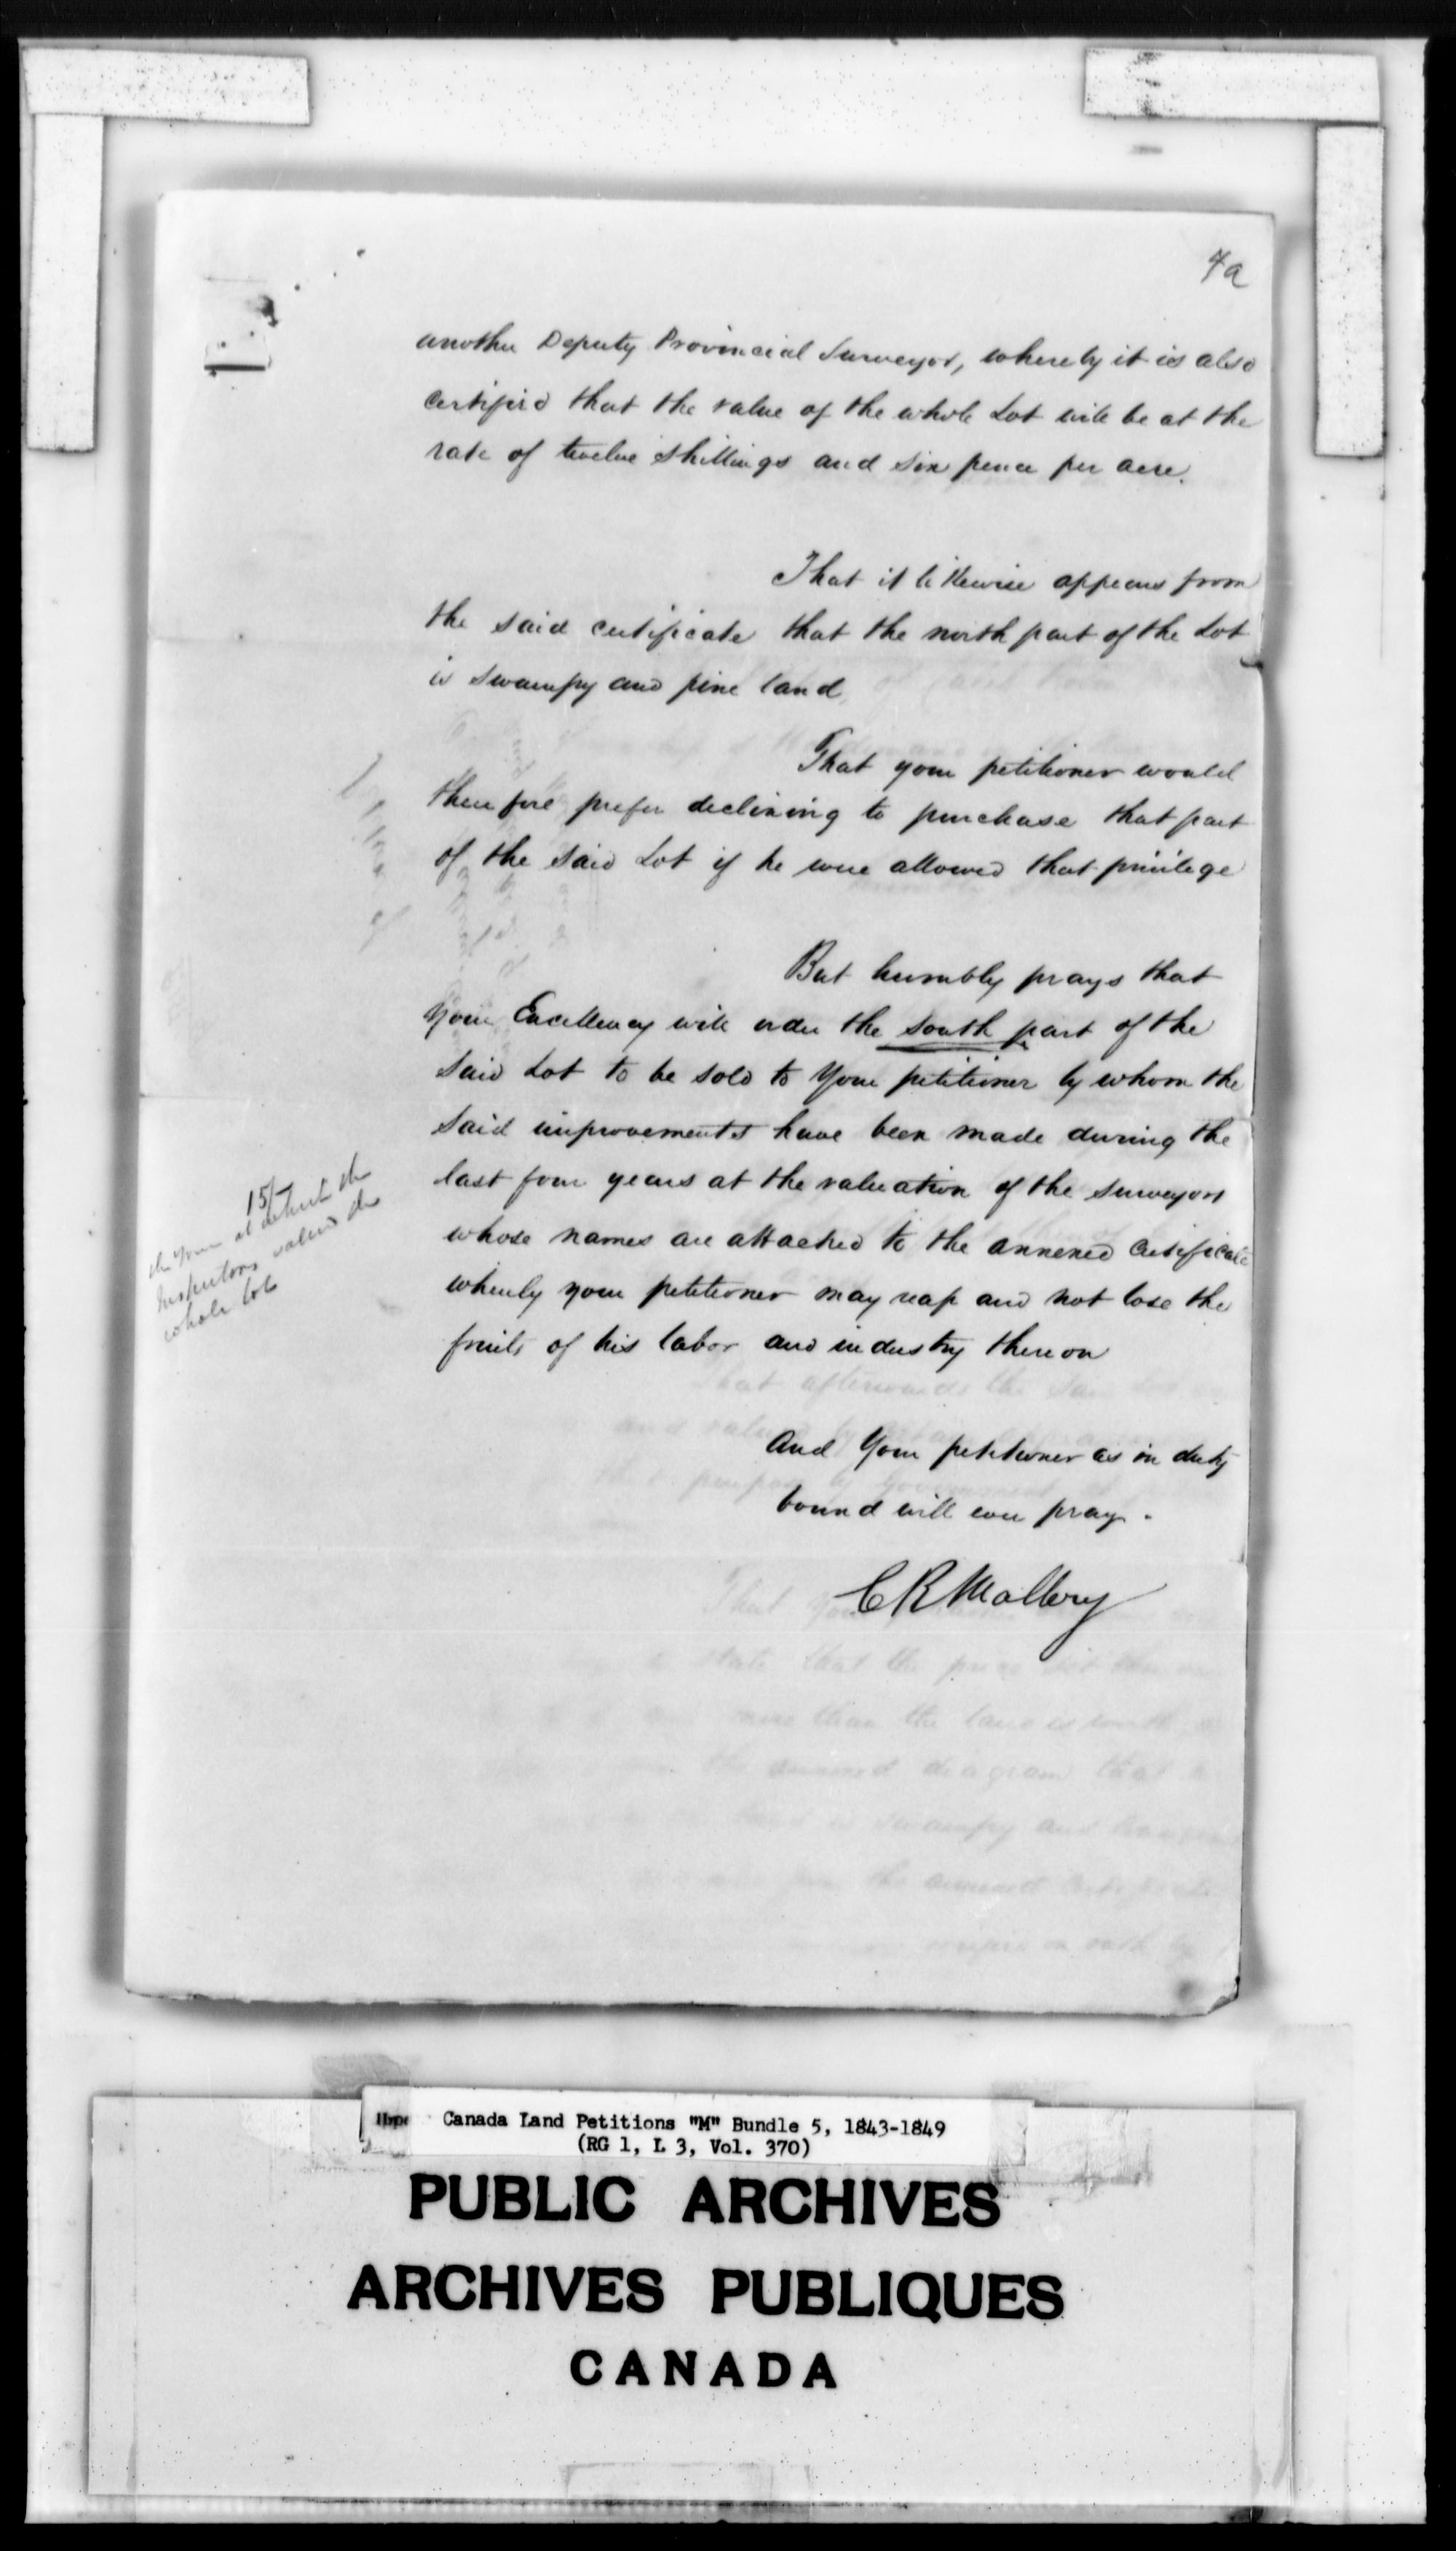 4a
another Deputy Provincial Surveyor, whereby it is also
certified that the value of the whole Lot will be at the
rate of twelve shillings and six pence per acre.
That it likewise appears from
the said certificate that the north part of the Lot
is swampy and pine land
That your petitioner would
therefore prefer declining to purchase that part
of the said Lot if he were allowed that privilege
But humbly prays that
Your Excellency will order the south part of the
said Lot to be sold to Your petitioner by whom the
said improvements have been made during the
last four years at the valuation of the surveyors
whose names are attached to the annexed certificate
whereby your petitioner may reap and not lose the
fruits of his labor and industry thereon
15/-
the
Inspectors valued the
whole lot
And Your petitioner as in duty
bound will ever pray.
C R Mallory
Canada Land Petitions "M" Bundle 5, 1843-1849
(RG 1, L 3, Vol. 370)
PUBLIC ARCHIVES
ARCHIVES PUBLIQUES
CANADA